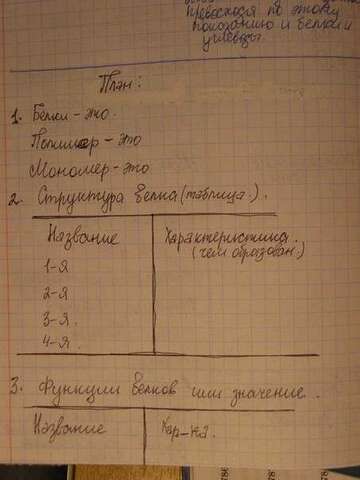 превосходя по этому
показанию и белки и
углеводы.
План:
1. Белки - это.
Полимер - это
Мономер - это
2. Структура белка (таблица.).
Название Характеристика.
(чем образован.)
1-я
2-я
3-я.
4-я.
3. Функции белков или значение.
Название Хар-ка.